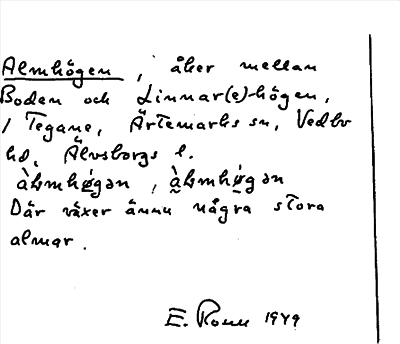 Almhögen, åker mellan
Boden och Linnar(e)-högen,
i Tegane, Ärtemarks sn, Vedbo
hd, Älvsborgs l.
àlmhǿ̱gən, à̰lmhǿ̱gən
Där växer ännu några stora
almar.
E. Ronn 1949